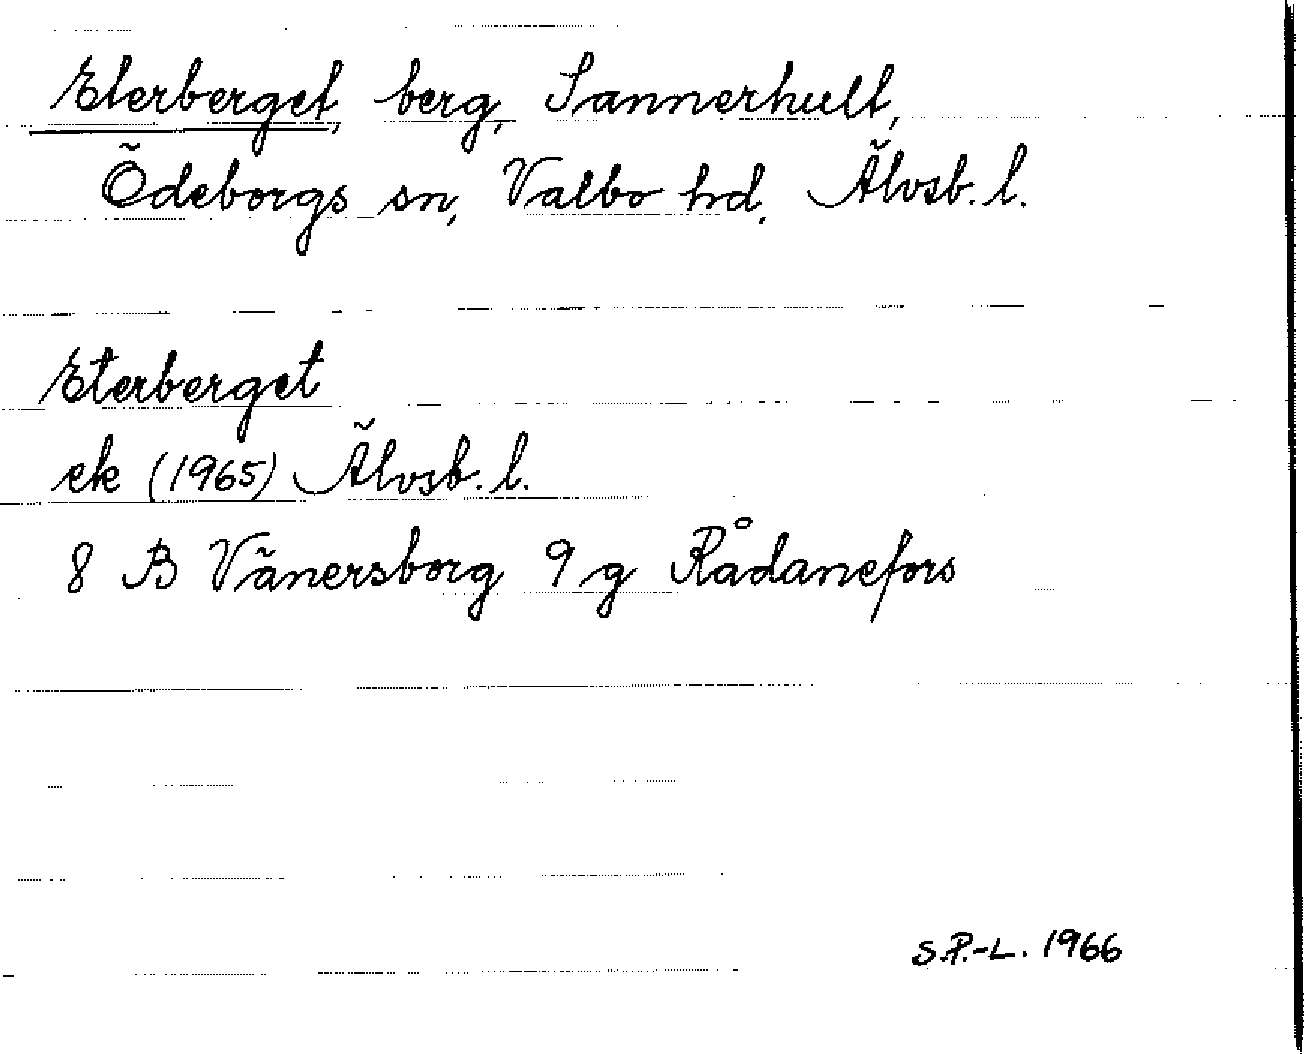 Eterberget, berg, Sannerhult,
Ödeborgs sn, Valbo hd, Älvsb. l.
Eterberget
ek (1965) Älvsb. l.
8 B Vänersborg 9 g Rådanefors
S.P.-L. 1966